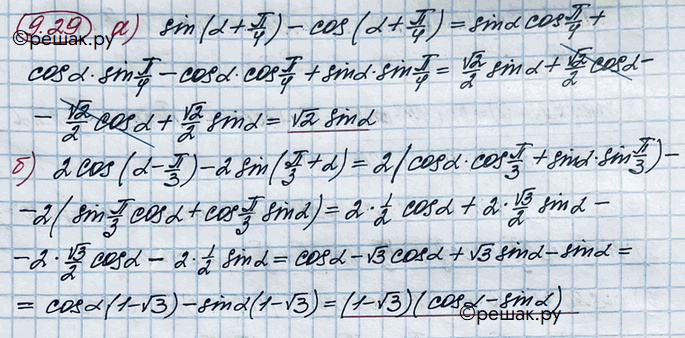 9.29 а) sin(α + π/4) − cos(α + π/4) = sinα cos π/4 +
©решак.ру
cosα · sin π/4 − cosα · cos π/4 + sinα · sin π/4 = √2/2 sinα + √2/2 cosα −
− √2/2 cosα + √2/2 sinα = √2 sinα
б) 2cos(α − π/3) − 2sin(π/3 + α) = 2(cosα · cos π/3 + sinα · sin π/3) −
−2(sin π/3 cosα + cos π/3 sinα) = 2 · 1/2 cosα + 2 · √3/2 sinα −
−2 · √3/2 cosα − 2 · 1/2 sinα = cosα − √3 cosα + √3 sinα − sinα =
= cosα(1−√3) − sinα(1−√3) = (1−√3)(cosα − sinα)
©решак.ру